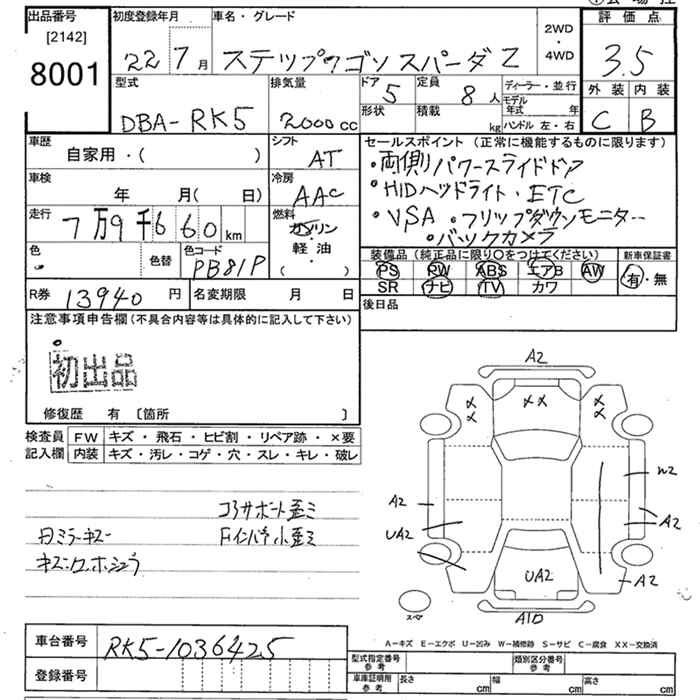 出品番号
[2142]
8001
初度登録年月
22 7 月
車名・グレード
ステップワゴン スパーダ Z
2WD
・
4WD
評価点
3.5
外装 内装
C B
型式
DBA-RK5
排気量
2000cc
ドア 5
形状
定員 8 人
積載 kg
ディーラー・並行
モデル年式 年
ハンドル 左・右
車歴
自家用・( )
シフト
AT
車検
年 月( 日)
冷房
AAC
走行
7万9千660km
燃料
ガソリン
軽・油
( ・ )
色
色替
色コード
PB81P
R券 13940 円
名変期限 月 日
セールスポイント(正常に機能するものに限ります)
・両側パワースライドドア
・HIDヘッドライト・ETC
・VSA ・フリップダウンモニター
・バックカメラ
装備品(純正品に限り○をつけてください)
新車保証書
PS PW ABS エアB AW
SR ナビ TV カワ
有・無
後日品
注意事項申告欄(不具合内容等は具体的に記入して下さい)
初出品
修復歴 有 〔箇所 〕
検査員
記入欄
FW キズ・飛石・ヒビ割・リペア跡・×要
内装 キズ・汚レ・コゲ・穴・スレ・キレ・破レ
コアサポート歪ミ
Fインパネ小歪ミ
A2
XX
XX
XX
W2
A2
A2
UA2
A2
UA2
A1D
スペア
車台番号 RK5-1036425
登録番号
A-キズ E-エクボ U-凹み W-補修跡 S-サビ C-腐食 XX-交換済
型式指定番号
参考
類別区分番号
参考
車庫証明用
参考
長さ cm
幅 cm
高さ cm